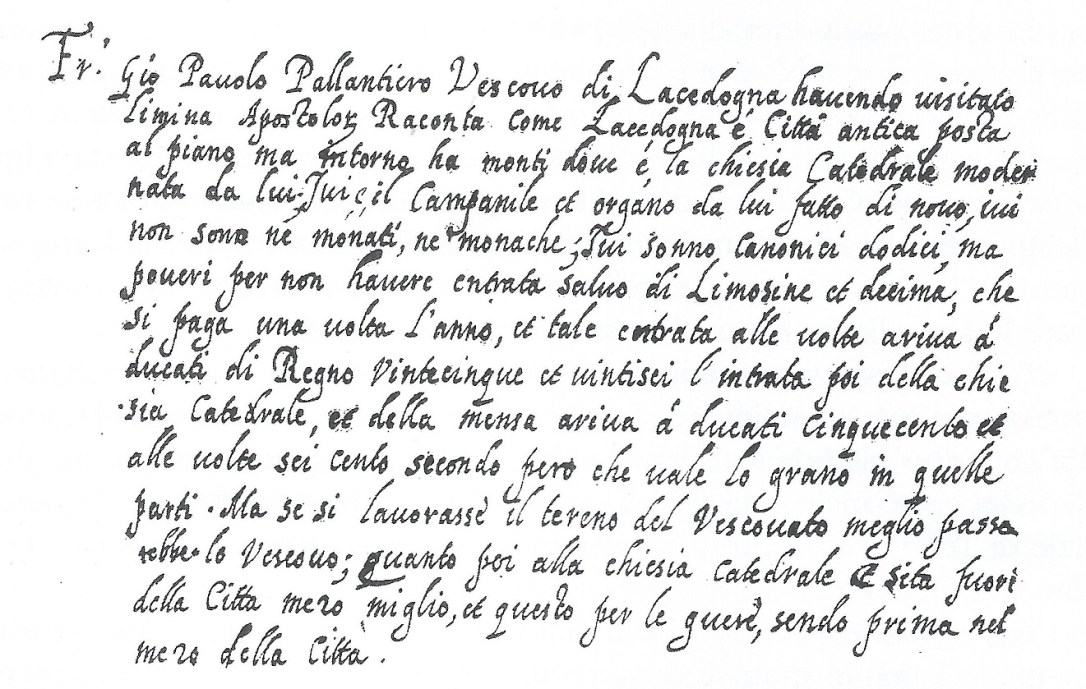 Fr. Gio Pauolo Pallantiero Vescouo di Lacedogna hauendo uisitato
limina Apostoloꝝ Raconta come Lacedogna é Cittá antica posta
al piano ma intorno ha monti doue é la chiesia Catedrale moder
nata da lui; Iui é il Campanile et organo da lui fatto di nouo, iui
non sono né monati, ne monache; Iui sonno canonici dodici, ma
poueri per non hauere entrata saluo di Limosine et decima, che
si paga una uolta l'anno, et tale entrata alle uolte ariua á
ducati di Regno Vintecinque et uintisei l'intrata poi della chie
sia Catedrale, et della mensa ariua á ducati Cinquecento et
alle uolte sei cento secondo pero che uale lo grano in quelle
parti. Ma se si lauorasse il tereno del Vescouato meglio passa
rebbe lo Vescouo; quanto poi alla chiesia catedrale é sita fuori
della Citta mezo miglio, et questo per le guere, sendo prima nel
mezo della Citta.